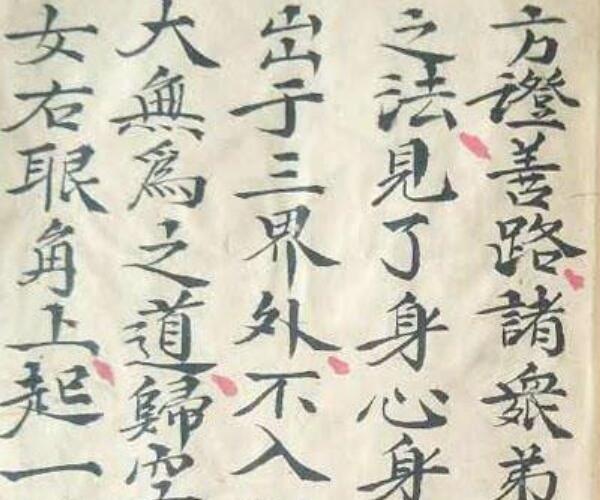 方證善路諸眾弟
之法見了身心身
出于三界外不入
大無為之道歸空
女右眼角上起一